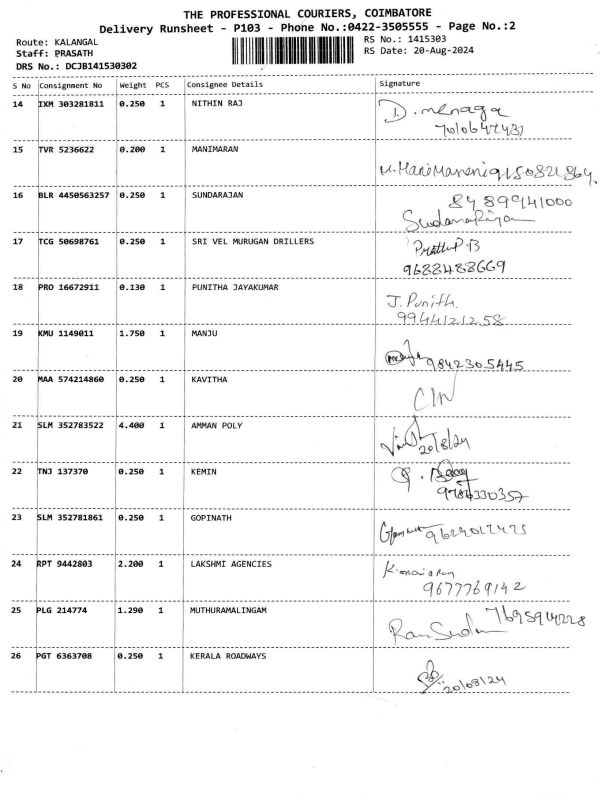 THE PROFESSIONAL COURIERS, COIMBATORE
Delivery Runsheet - P103 - Phone No.:0422-3505555 - Page No.:2
Route: KALANGAL RS No.: 1415303
Staff: PRASATH RS Date: 20-Aug-2024
DRS No.: DCJB141530302
S No Consignment No Weight PCS Consignee Details Signature
14 IXM 303281811 0.250 1 NITHIN RAJ D. menaga
15 TVR 5236622 0.200 1 MANIMARAN
16 BLR 4450563257 0.250 1 SUNDARAJAN 8489941000
17 TCG 50698761 0.250 1 SRI VEL MURUGAN DRILLERS
9688488669
18 PRO 16672911 0.130 1 PUNITHA JAYAKUMAR J. Punith.
9944121258
19 KMU 1149011 1.750 1 MANJU
9842305445
20 MAA 574214860 0.250 1 KAVITHA
21 SLM 352783522 4.400 1 AMMAN POLY
20/8/24
22 TNJ 137370 0.250 1 KEMIN
23 SLM 352781861 0.250 1 GOPINATH
24 RPT 9442803 2.200 1 LAKSHMI AGENCIES
9677769142
25 PLG 214774 1.290 1 MUTHURAMALINGAM
26 PGT 6363708 0.250 1 KERALA ROADWAYS
20/08/24